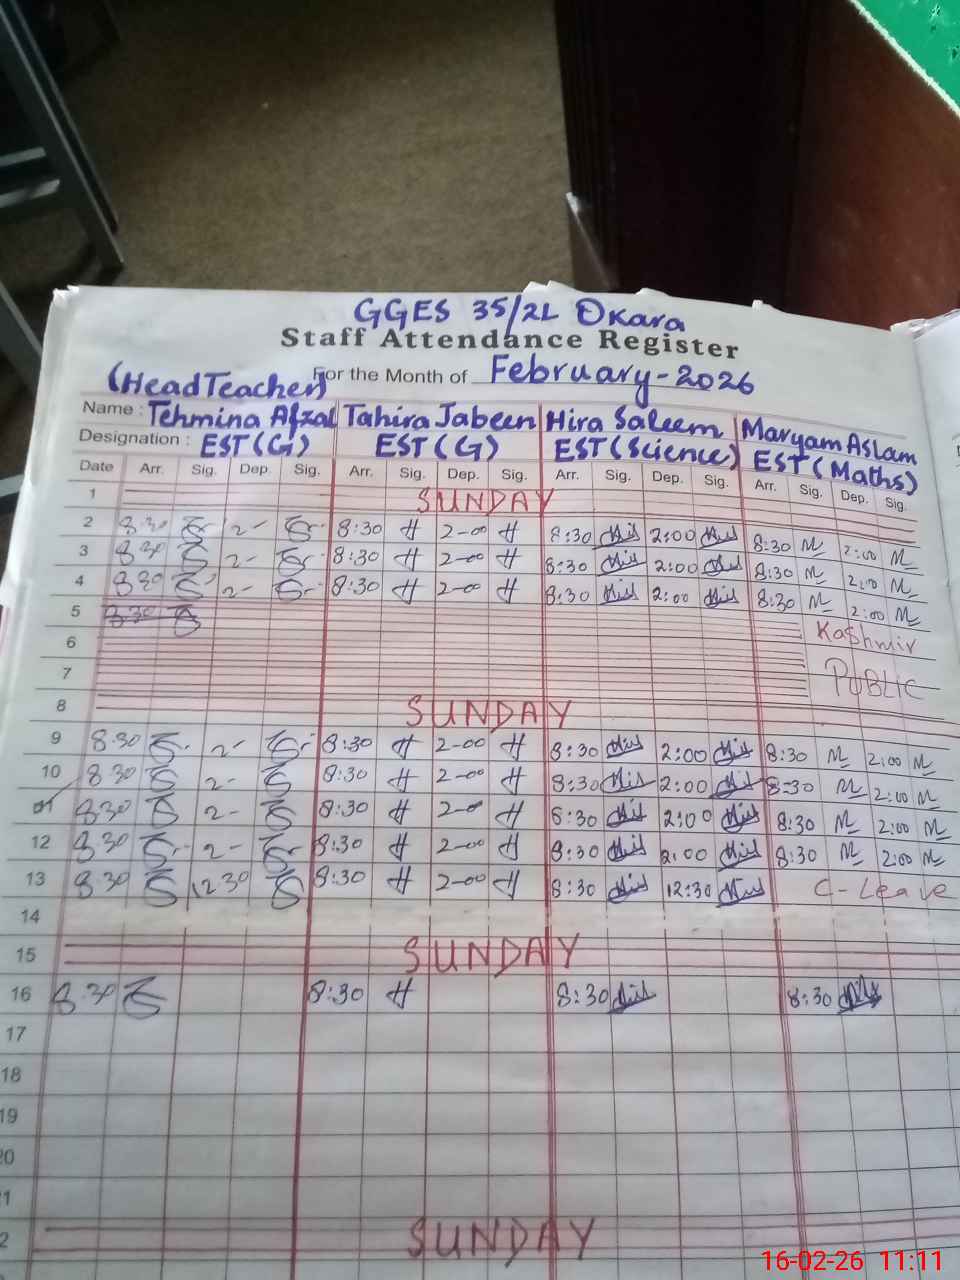 GGES 35/2L Okara
Staff Attendance Register
(Head Teacher) For the Month of February-2026
Name : Tehmina Afzal Tahira Jabeen Hira Saleem Maryam Aslam
Designation : EST(G) EST(G) EST(Science) EST(Maths)
Date Arr. Sig. Dep. Sig. Arr. Sig. Dep. Sig. Arr. Sig. Dep. Sig. Arr. Sig. Dep. Sig.
1 SUNDAY
2 8:30 2- 8:30 H 2-00 H 8:30 2:00 8:30 M 2:00 M
3 8:30 2- 8:30 H 2-00 H 8:30 2:00 8:30 M 2:00 M
4 8:30 2- 8:30 H 2-00 H 8:30 2:00 8:30 M 2:00 M
5 8:30 Kashmir
6
7 PUBLIC
8 SUNDAY
9 8:30 2- 8:30 H 2-00 H 8:30 2:00 8:30 M 2:00 M
10 8:30 2- 8:30 H 2-00 H 8:30 2:00 8:30 M 2:00 M
8:30 2- 8:30 H 2-00 H 8:30 2:00 8:30 M 2:00 M
12 8:30 2- 8:30 H 2-00 H 8:30 2:00 8:30 M 2:00 M
13 8:30 12:30 8:30 H 2-00 H 8:30 12:30 C-Leave
14
15 SUNDAY
16 8:30 8:30 H 8:30 8:30
17
18
19
20
21
2 SUNDAY
16-02-26 11:11